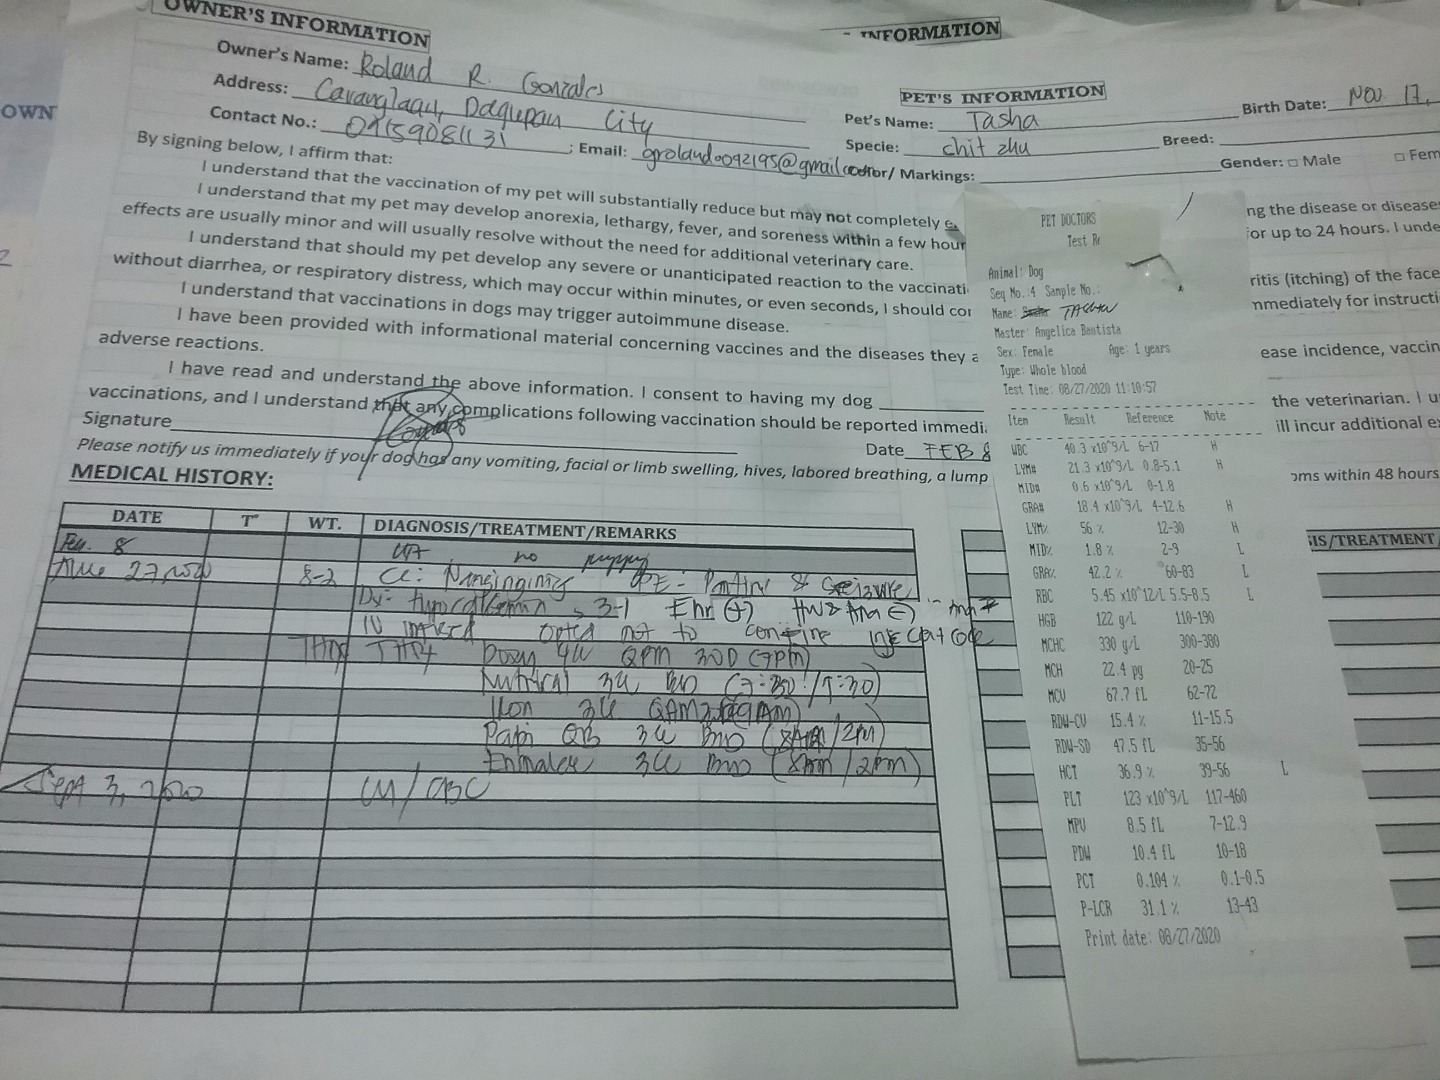 OWNER'S INFORMATION
INFORMATION
OWN
Owner's Name: Roland R. Gonzales
Address: Caranglaan, Dagupan City
Contact No.: 09159081131 ; Email: groland0092195@gmail.com
PET'S INFORMATION
Birth Date: Nov 17,
Pet's Name: Tasha
Specie: chit zhu Breed:
or/ Markings: Gender: □ Male □ Fem
By signing below, I affirm that:
I understand that the vaccination of my pet will substantially reduce but may not completely
ng the disease or disease
I understand that my pet may develop anorexia, lethargy, fever, and soreness within a few hour
or up to 24 hours. I unde
effects are usually minor and will usually resolve without the need for additional veterinary care.
I understand that should my pet develop any severe or unanticipated reaction to the vaccinati
ritis (itching) of the face
without diarrhea, or respiratory distress, which may occur within minutes, or even seconds, I should con
mmediately for instructi
I understand that vaccinations in dogs may trigger autoimmune disease.
I have been provided with informational material concerning vaccines and the diseases they a
ease incidence, vaccin
adverse reactions.
I have read and understand the above information. I consent to having my dog
the veterinarian. I u
vaccinations, and I understand that any complications following vaccination should be reported immedi
ill incur additional e
Signature Date FEB 8
Please notify us immediately if your dog has any vomiting, facial or limb swelling, hives, labored breathing, a lump
oms within 48 hours
MEDICAL HISTORY:
DATE T° WT. DIAGNOSIS/TREATMENT/REMARKS
IS/TREATMENT/
8 no puppy
27, 2020 8-2 CC: PE: &
3-1 Ehr (+)
opted not to confine
4W QPM 30D (7pm)
Nutrical
Sept 3, 2020 CBC
PET DOCTORS
Test Re
Animal: Dog
Seq No.:4 Sample No.:
Name:
Master: Angelica Bautista
Sex: Female Age: 1 years
Type: Whole blood
Test Time: 08/27/2020 11:10:57
Item Result Reference Note
WBC 40.3 x10^9/L 6-17 H
LYM# 21.3 x10^9/L 0.8-5.1 H
MID# 0.6 x10^9/L 0-1.8
GRA# 18.4 x10^9/L 4-12.6 H
LYM% 56 % 12-30 H
MID% 1.8 % 2-9 L
GRA% 42.2 % 60-83 L
RBC 5.45 x10^12/L 5.5-8.5 L
HGB 122 g/L 110-190
MCHC 330 g/L 300-380
MCH 22.4 pg 20-25
MCV 67.7 fL 62-72
RDW-CV 15.4 % 11-15.5
RDW-SD 47.5 fL 35-56
HCT 36.9 % 39-56 L
PLT 123 x10^9/L 117-460
MPV 8.5 fL 7-12.9
PDW 10.4 fL 10-18
PCT 0.104 % 0.1-0.5
P-LCR 31.1 % 13-43
Print date: 08/27/2020